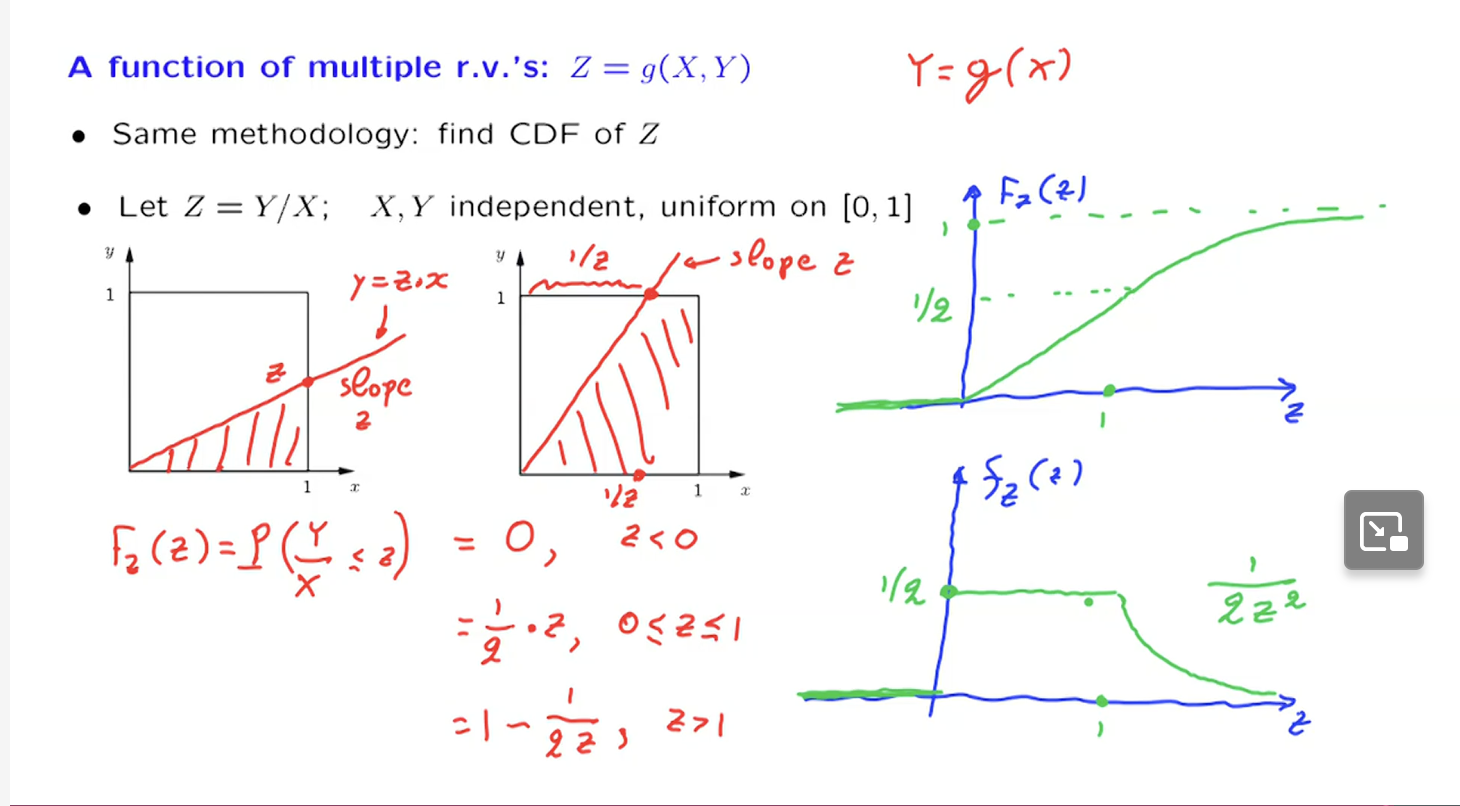 A function of multiple r.v.'s: Z = g(X, Y)
Y = g(x)
• Same methodology: find CDF of Z
• Let Z = Y/X; X, Y independent, uniform on [0, 1]
y
1
y = z·x
z
slope
z
1
x
y
1/z
slope z
1
1/z
1
x
F_Z(z)
1
1/2
1
z
F_Z(z) = P(Y/X ≤ z) = 0, z < 0
= 1/2 · z, 0 ≤ z ≤ 1
= 1 − 1/2z, z > 1
f_Z(z)
1/2
1/2z²
1
z